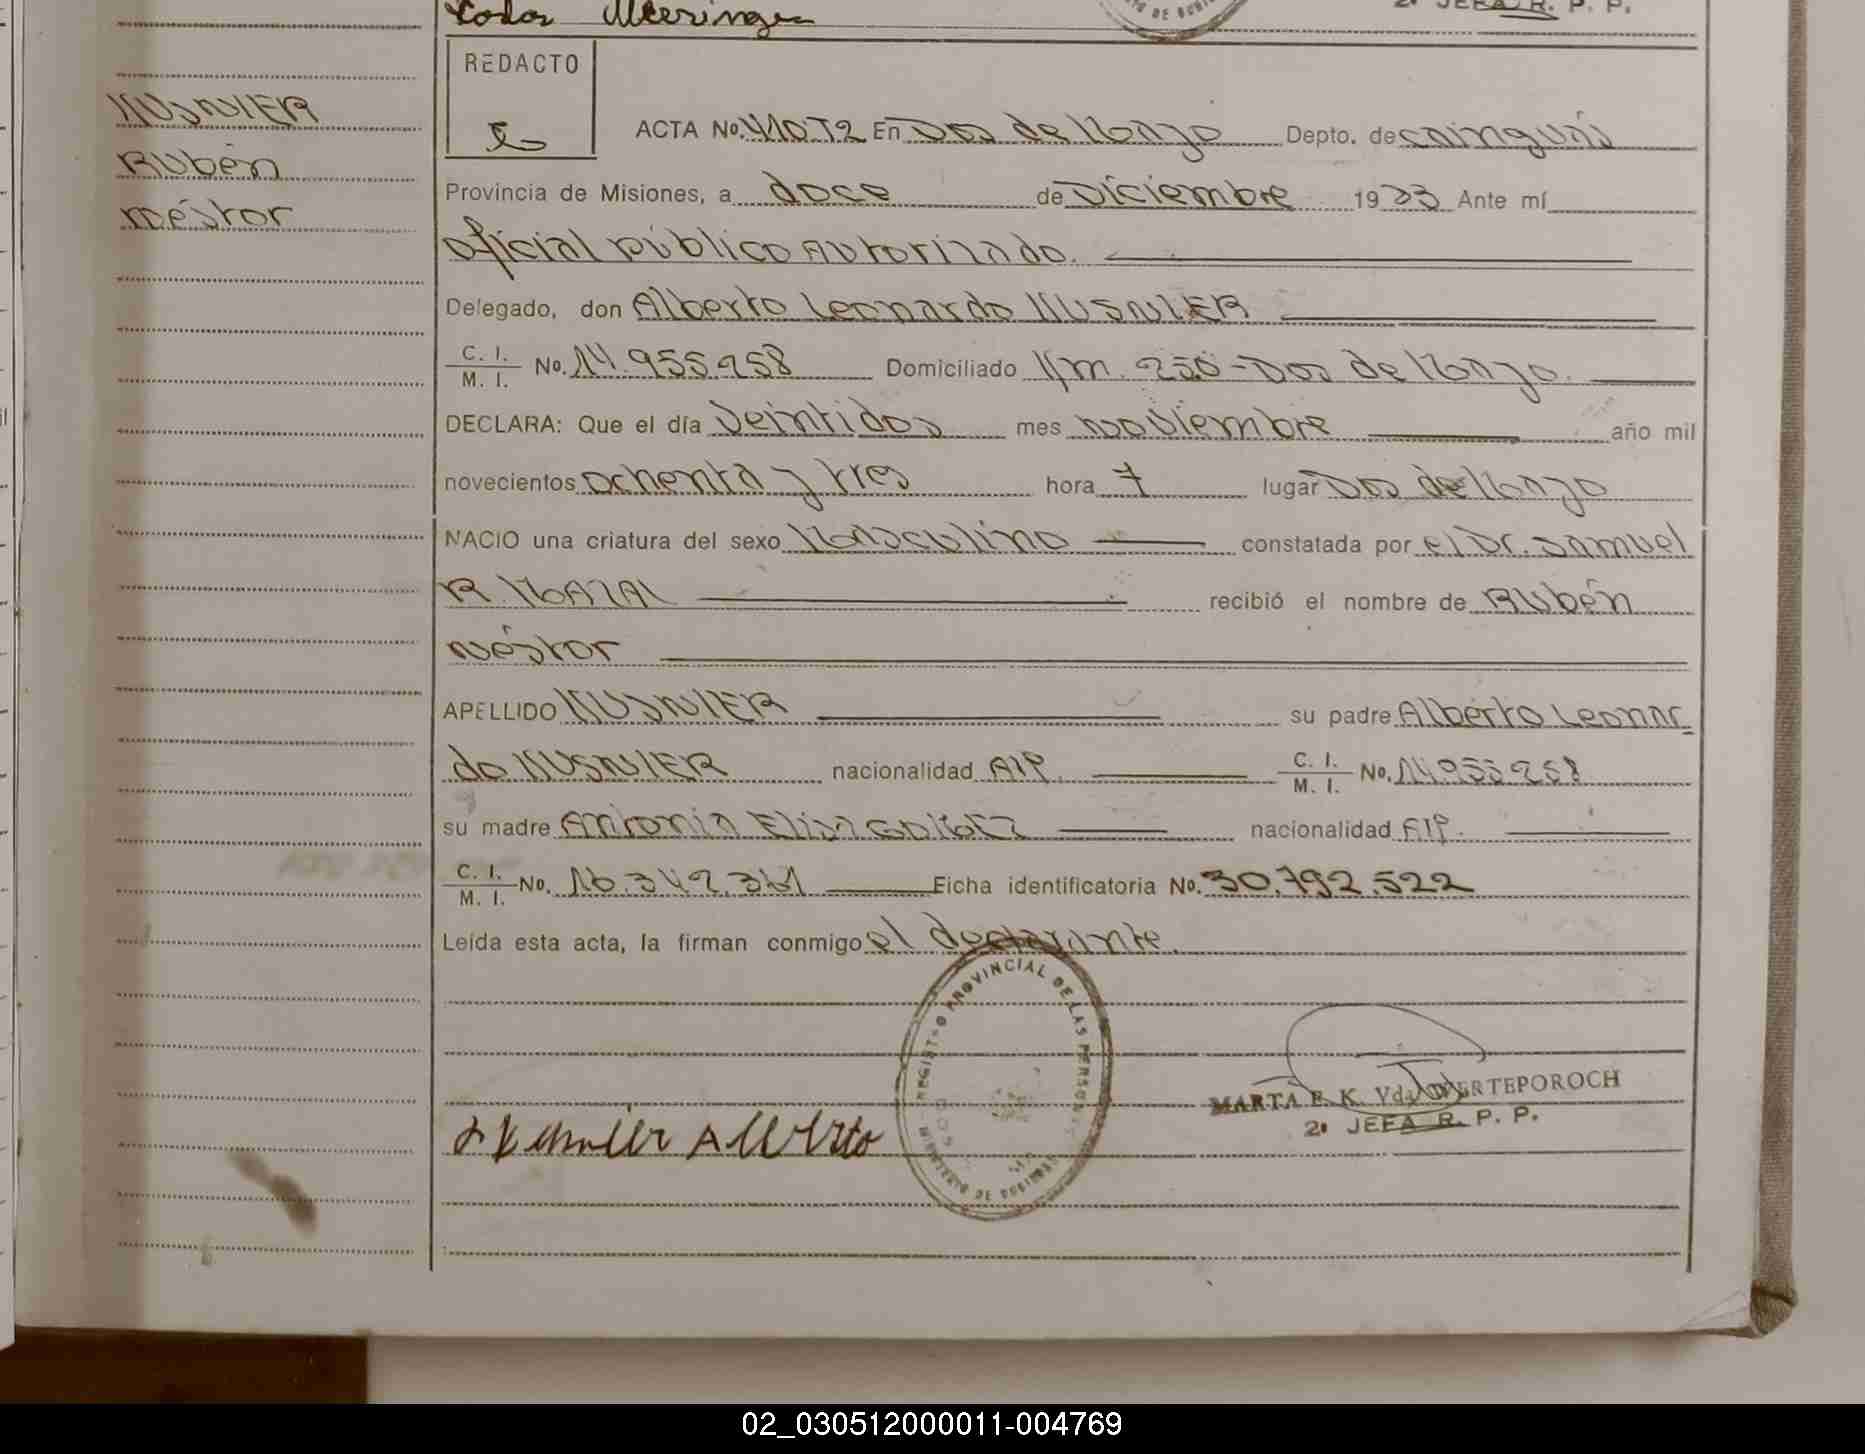 REDACTO
KUSNIER
Rubén
Néstor
ACTA No. 410 T2 En Dos de Mayo Depto. de Cainguás
Provincia de Misiones, a doce de Diciembre 1983 Ante mí
oficial público Autorizado.
Delegado, don Alberto Leonardo KUSNIER
C. I.
M. I. No. 14.955.258 Domiciliado Km. 250 - Dos de Mayo.
DECLARA: Que el día Veintidos mes noviembre año mil
novecientos ochenta y tres hora 7 lugar Dos de Mayo
NACIO una criatura del sexo Masculino constatada por el Dr. Samuel
R. MAZAL recibió el nombre de Rubén
Néstor
APELLIDO KUSNIER su padre Alberto Leonar
do KUSNIER nacionalidad Arg. C. I.
M. I. No. 14.955.258
su madre Antonia Elisa nacionalidad Arg.
C. I.
M. I. No. 16.342.361 Ficha identificatoria No. 30.792.522
Leída esta acta, la firman conmigo el declarante.
REGISTRO PROVINCIAL DE LAS PERSONAS
Kusnier Alberto
MARTA E. K. Vda. WERTEPOROCH
2a JEFA R. P. P.
02_030512000011-004769